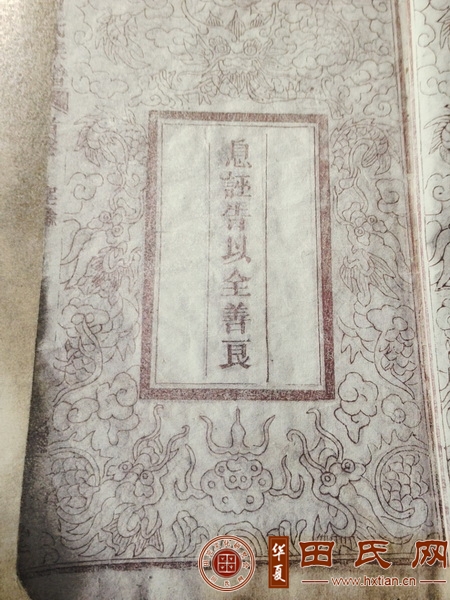 息誣告以全善良
华夏
田氏网
www.hxtian.cn